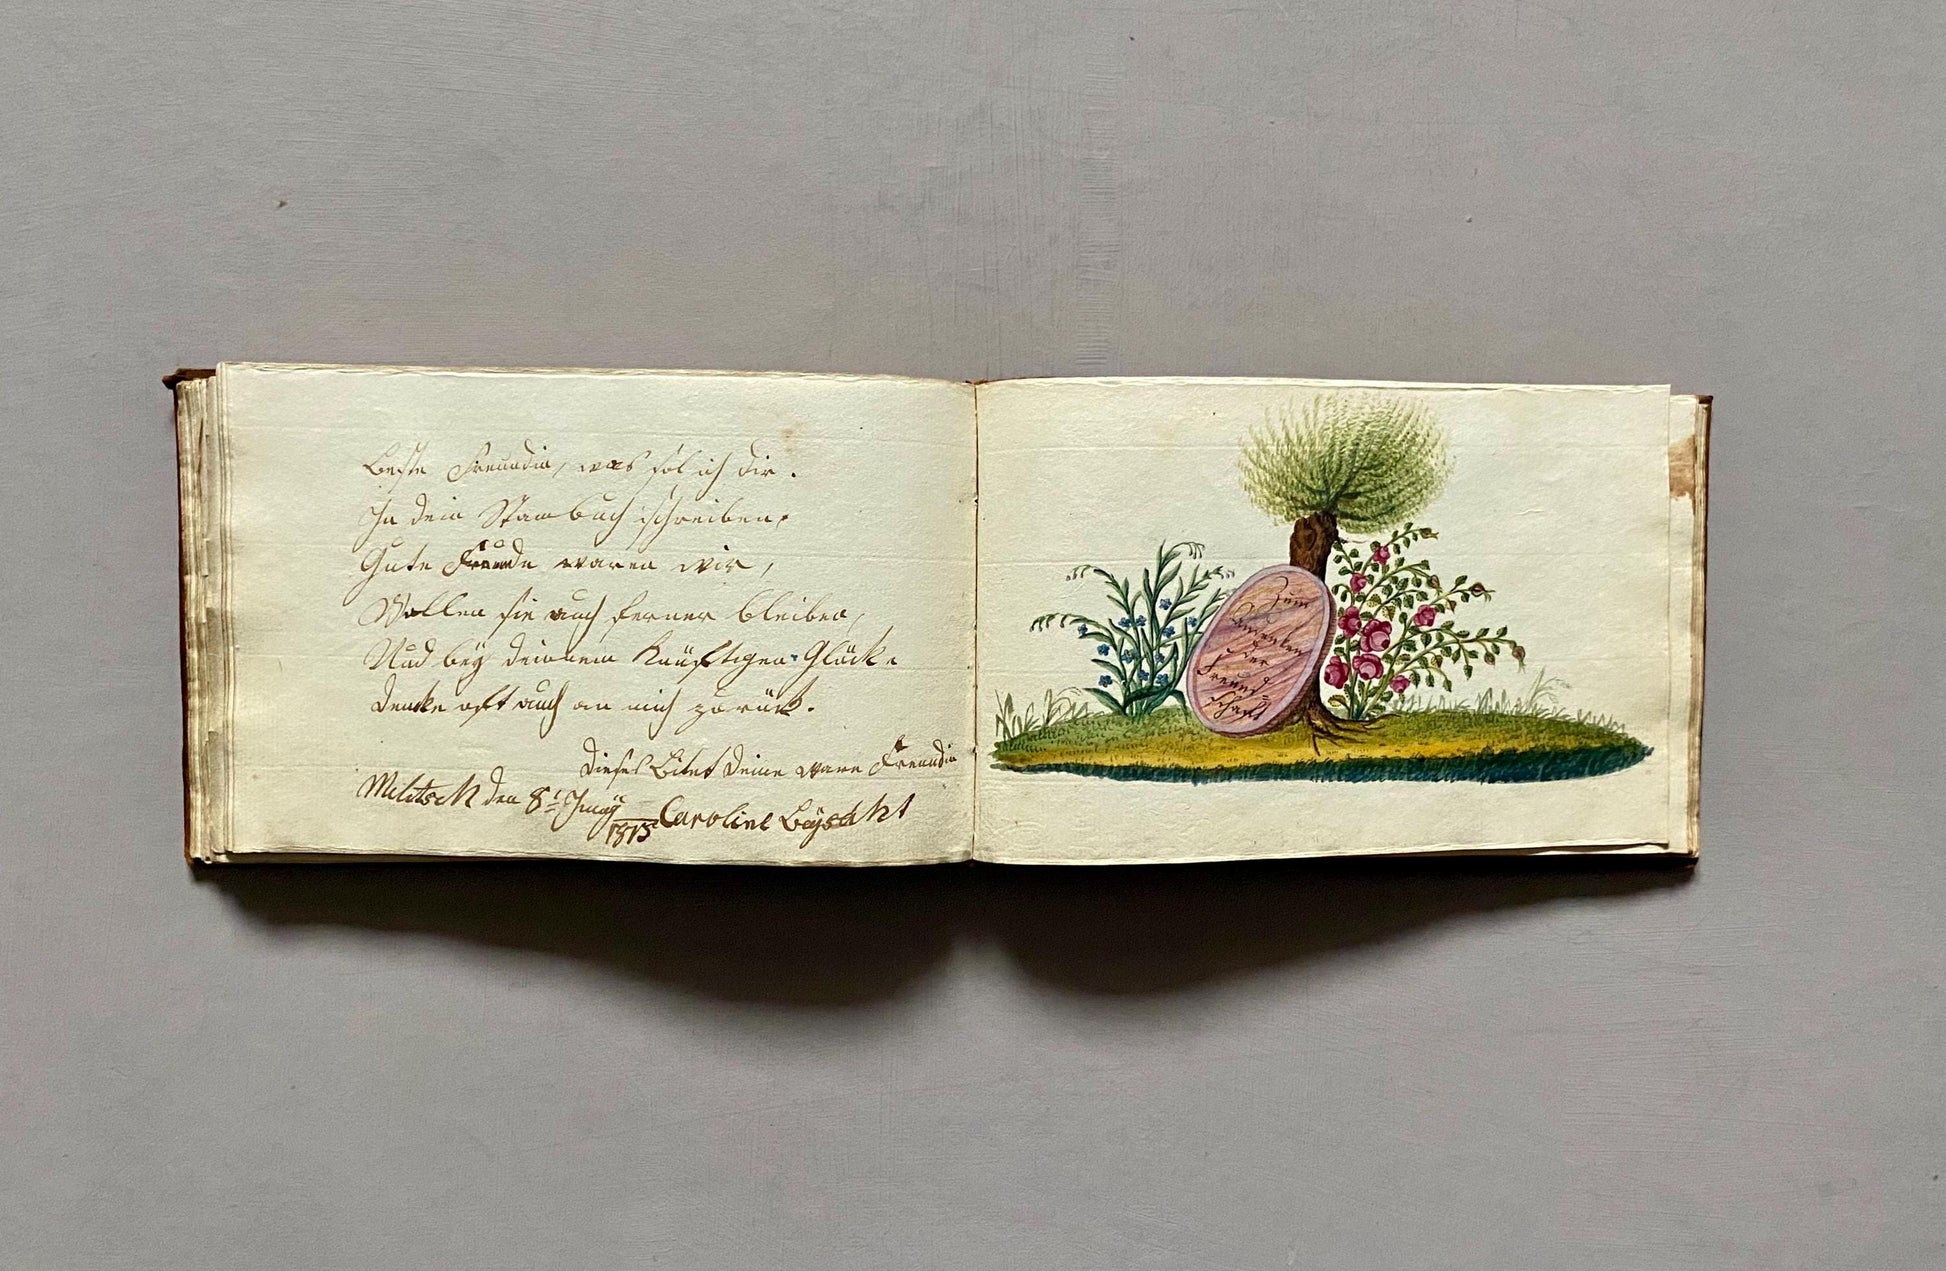 Beste Freundin, was sol ich dir.
In dein Stambuch schreiben,
Gute Freunde waren wir,
Wollen sie auch ferner bleiben,
Und bey deinnem Künftigen Glücke
Dencke oft auch an mich zurück.
Dieses Bitet deine ware Freundin
Militsch den 8t
1815 Caroline
Zum
Andenken
der
Freund=
schaft